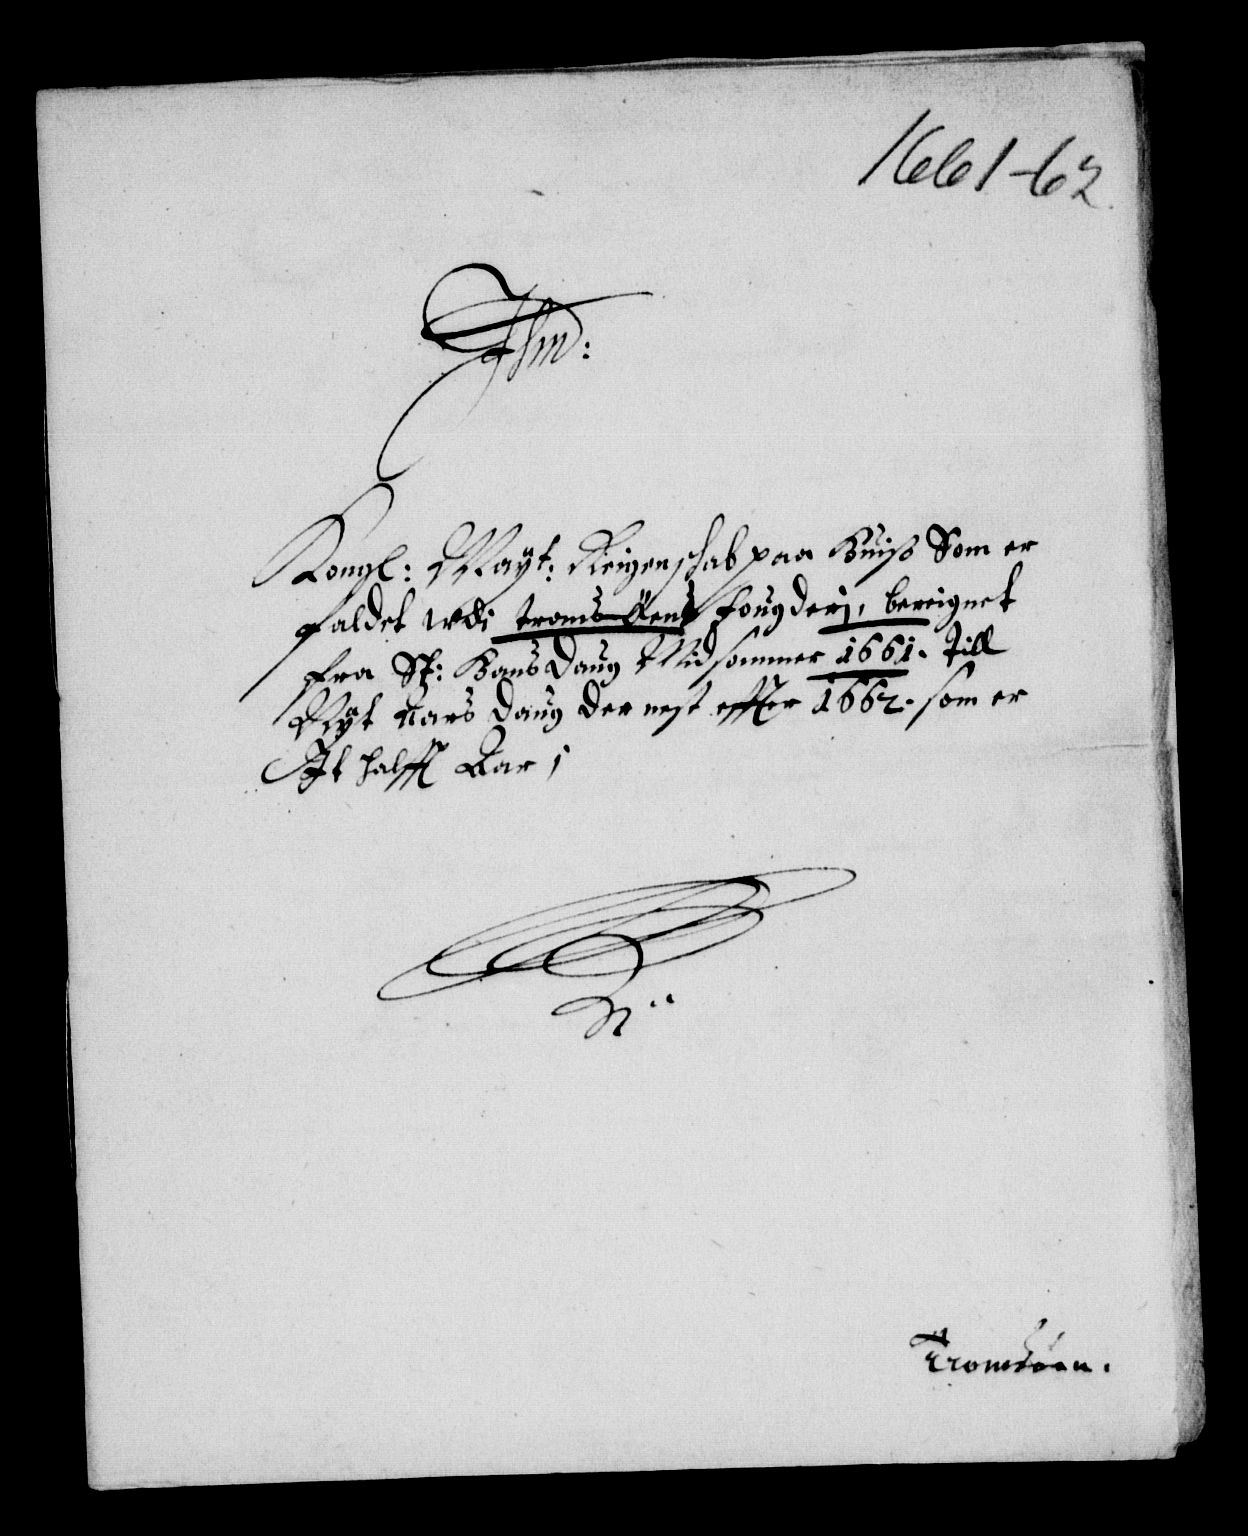 1661-62.
Kongl: Mayt: Reigenschab paa huis Som er
faldet udi tromsøens fougderj, bereignet
fra St: Hans daug Midsommer 1661. Till
Nyt aars daug der nest effter 1662. som er
It halfft Aar /
Tromsöen.